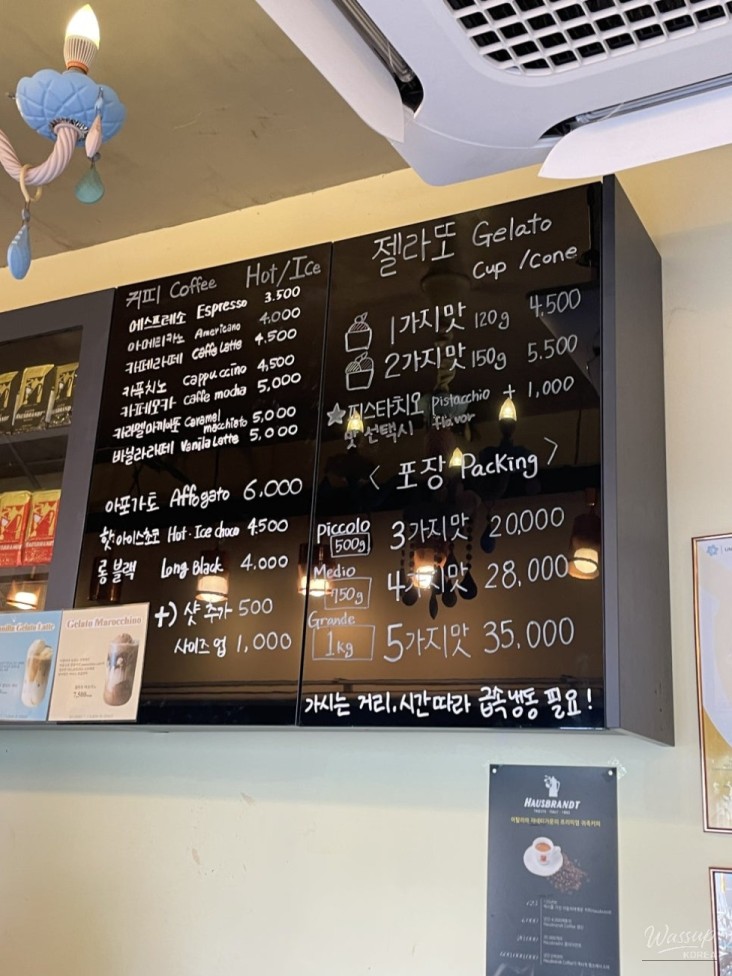 커피 Coffee Hot/Ice
에스프레소 Espresso 3.500
아메리카노 Americano 4,000
카페라떼 Caffe Latte 4.500
카푸치노 cappuccino 4,500
카페모카 caffe mocha 5,000
카라멜마끼아또 Caramel macchiato 5,000
바닐라라떼 Vanila Latte 5,000
아포가토 Affogato 6,000
핫·아이스초코 Hot·Ice choco 4.500
롱블랙 Long Black 4.000
+) 샷추가 500
사이즈 업 1,000
젤라또 Gelato
Cup /cone
1가지맛 120g 4,500
2가지맛 150g 5.500
☆피스타치오 Pistacchio + 1,000
맛 선택시 flavor
< 포장 Packing >
Piccolo 500g 3가지맛 20,000
Medio 750g 4가지맛 28,000
Grande 1kg 5가지맛 35.000
가시는 거리, 시간따라 급속냉동 필요!
Gelato Marocchino
HAUSBRANDT
Wassup
KOREA